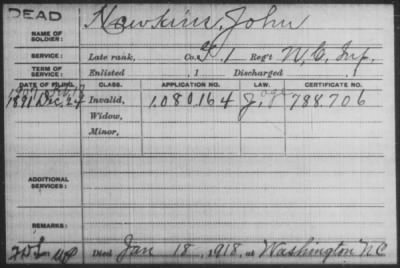 DEAD
NAME OF SOLDIER: Hawkins, John
SERVICE: Late rank, Co. 1 Reg't N.C. Inf.
TERM OF SERVICE: Enlisted , 1 Discharged , 1
DATE OF FILING. CLASS. APPLICATION NO. LAW. CERTIFICATE NO.
1891 Dec. 24 Invalid, 1,080,164 788,706
Widow,
Minor,
ADDITIONAL SERVICES:
REMARKS:
Died Jan 18, 1918, at Washington N.C.